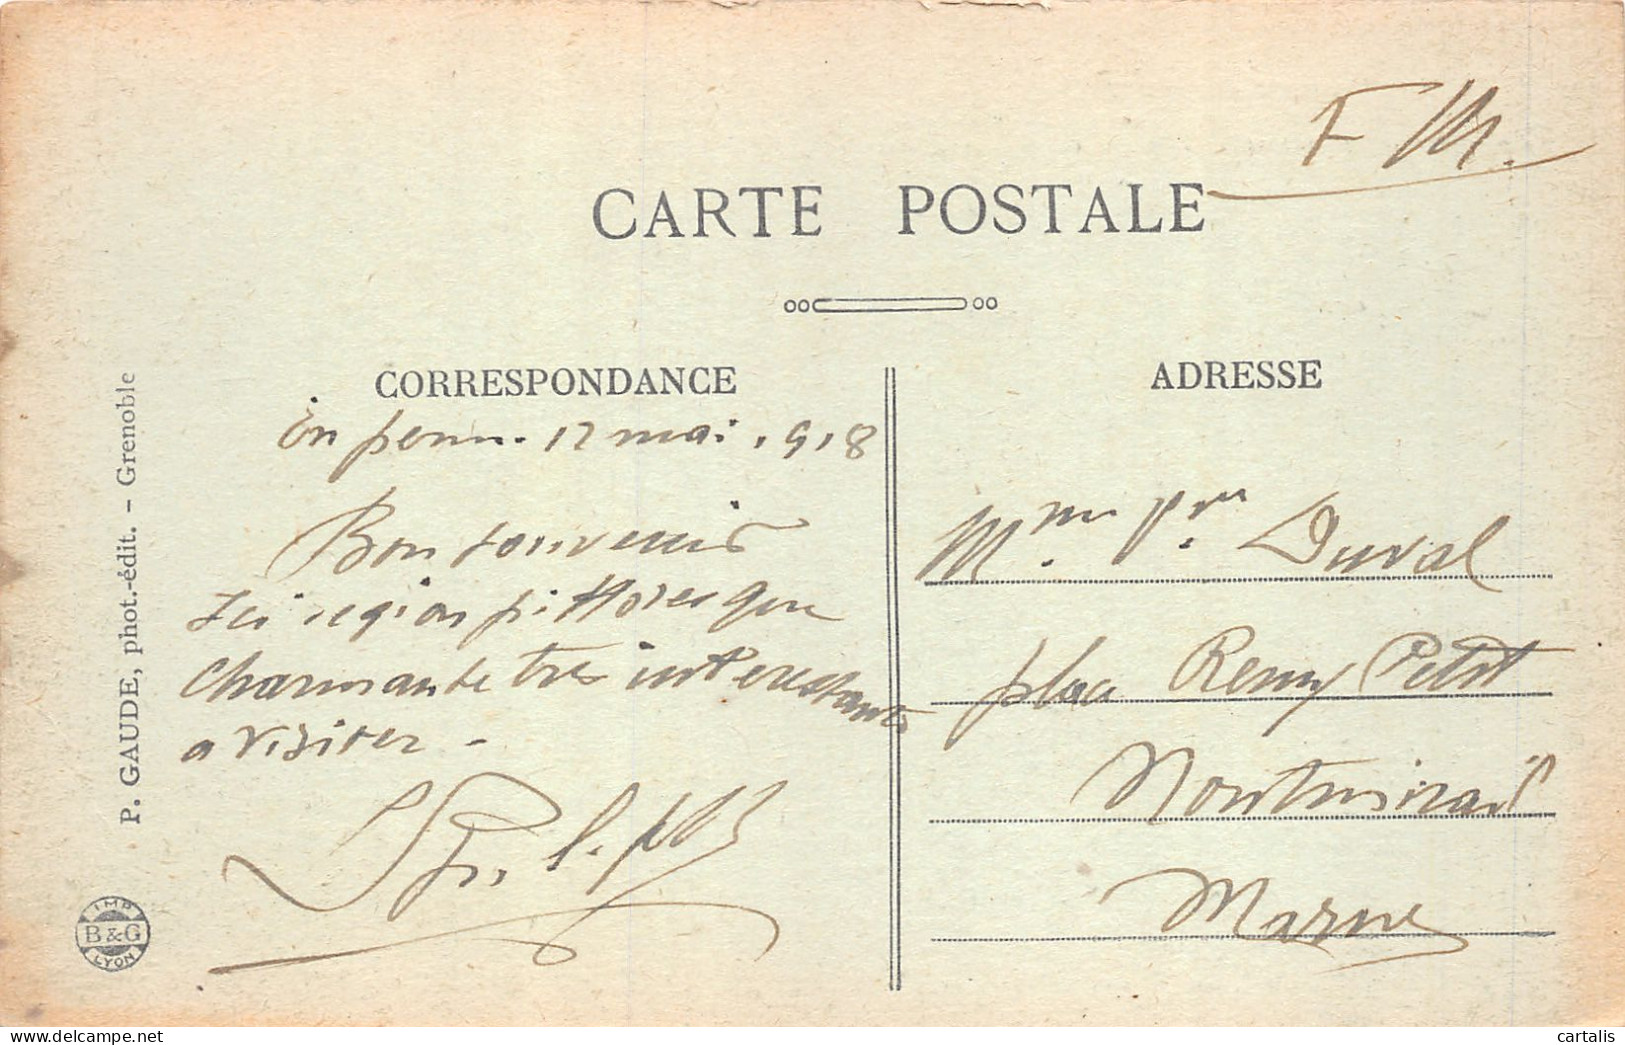 F M.
CARTE POSTALE
CORRESPONDANCE
ADRESSE
En perm. 12 mai 1918
Bon souvenir
Ici region pittoresque
charmante très interestante
a visiter -
Mme Duval
place Remy Petit
Montmirail
Marne
P. GAUDE, phot.-édit. - Grenoble
IMP
B & G
LYON
cartalis